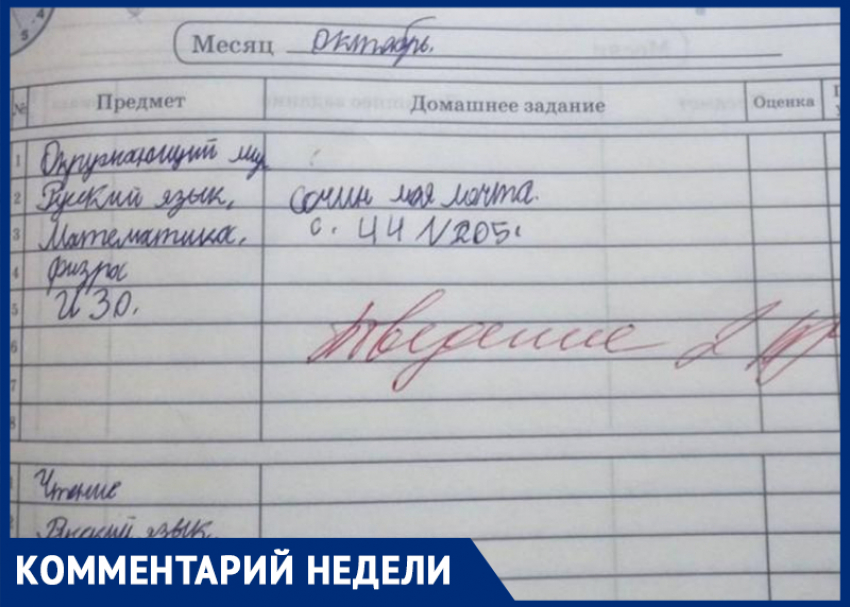 Месяц октябрь.
№ Предмет Домашнее задание Оценка
1 Окружающий ми.
2 Русский язык, сочин моя мечта.
3 Математика, с. 44 №205.
4 физра
5 ИЗО.
6 Поведение 2
7
8
Чтение
Русский язык.
КОММЕНТАРИЙ НЕДЕЛИ